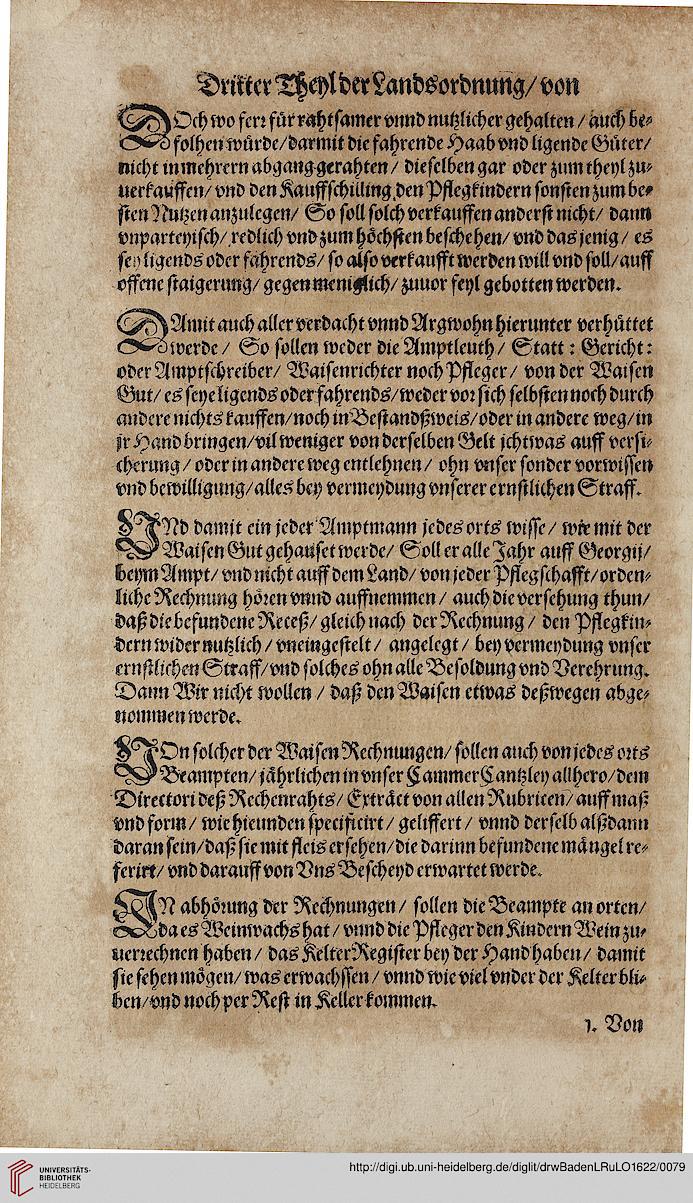 Dritter Theyl der Landsordnung/ von
DOch wo ferr für rahtsamer vnnd nutzlicher gehalten / auch be-
folhen würde/ darmit die fahrende Haab vnd ligende Güter/
nicht in mehrern abgang gerahten / dieselben gar oder zum theyl zu-
uerkauffen/ vnd den Kauffschilling den Pflegkindern sonsten zum be-
sten Nutzen anzulegen/ So soll solch verkauffen anderst nicht/ dann
vnparteyisch/ redlich vnd zum höchsten beschehen/ vnd das jenig / es
sey ligends oder fahrends/ so also verkaufft werden will vnd soll/ auff
offene staigerung/ gegen meniglich/ zuuor feyl gebotten werden.
DAmit auch aller verdacht vnnd Argwohn hierunter verhüttet
werde / So sollen weder die Amptleuth / Statt : Gericht :
oder Amptschreiber/ Waisenrichter noch Pfleger / von der Waisen
Gut/ es seye ligends oder fahrends/ weder vor sich selbsten noch durch
andere nichts kauffen/ noch in Bestandßweis/ oder in andere weg/ in
jr Hand bringen/ vil weniger von derselben Gelt ichtwas auff versi-
cherung / oder in andere weg entlehnen / ohn vnser sonder vorwissen
vnd bewilligung/ alles bey vermeydung vnserer ernstlichen Straff.
VNd damit ein jeder Amptmann jedes orts wisse / wie mit der
Waisen Gut gehauset werde/ Soll er alle Jahr auff Georgij/
beym Ampt/ vnd nicht auff dem Land/ von jeder Pflegschafft/ orden-
liche Rechnung hören vnnd auffnemmen / auch die versehung thun/
daß die befundene Receß/ gleich nach der Rechnung / den Pflegkin-
dern wider nutzlich / vneingestelt / angelegt / bey vermeydung vnser
ernstlichen Straff/ vnd solches ohn alle Besoldung vnd Verehrung.
Dann Wir nicht wollen / daß den Waisen etwas deßwegen abge-
nommen werde.
VOn solcher der Waisen Rechnungen/ sollen auch von jedes orts
Beampten/ jährlichen in vnser Cammer Cantzley allhero/ dem
Directori deß Rechenrahts/ Extract von allen Rubricen/ auff maß
vnd form / wie hieunden specificirt / geliffert / vnnd derselb alßdann
daran sein/ daß sie mit fleis ersehen/ die darinn befundene mängel re-
ferirt/ vnd darauff von Vns Bescheyd erwartet werde.
IN abhörung der Rechnungen / sollen die Beampte an orten/
da es Weinwachs hat / vnnd die Pfleger den Kindern Wein zu-
uerrechnen haben / das Kelter Register bey der Hand haben / damit
sie sehen mögen/ was erwachssen / vnnd wie viel vnder der Kelter bli-
ben/ vnd noch per Rest in Keller kommen.
1. Von
UNIVERSITÄTS-
BIBLIOTHEK
HEIDELBERG
http://digi.ub.uni-heidelberg.de/diglit/drwBadenLRuLO1622/0079